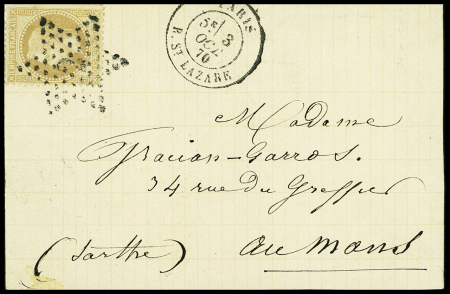 PARIS
5E / 3
OCT.
70
R. ST LAZARE
Madame
Gracian-Garros.
34 rue du Greffier
au Mans
(Sarthe)